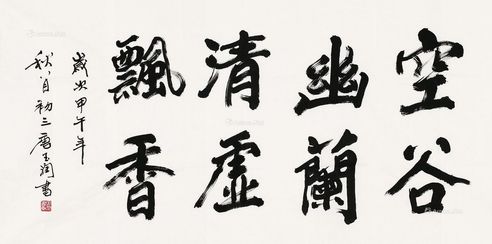 空谷
幽蘭
清虛
飄香
歲次甲午年
秋八月初三唐玉潤書